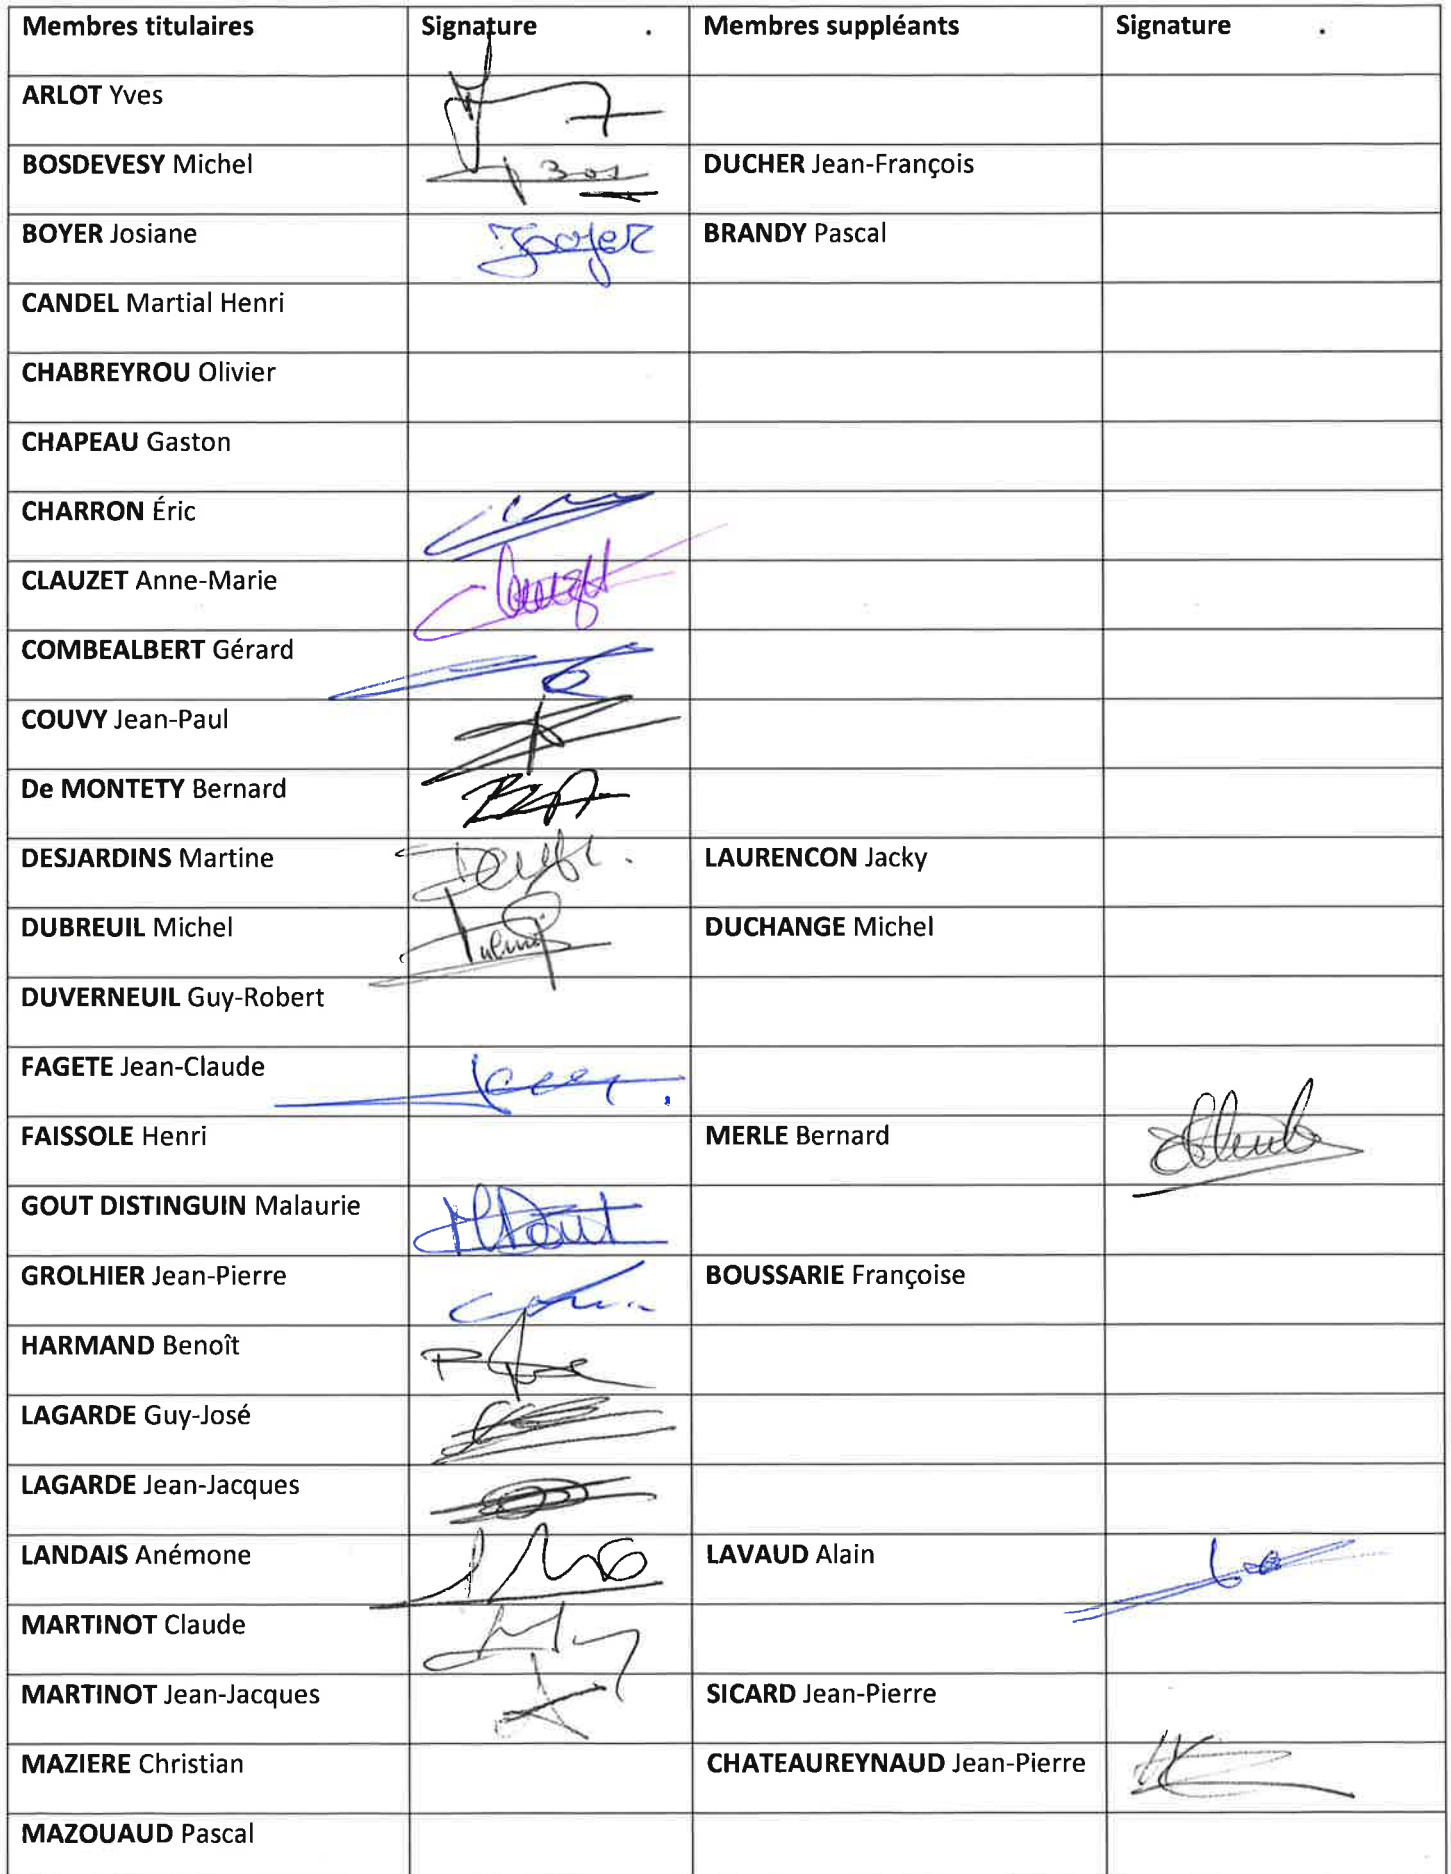 Membres titulaires Signature . Membres suppléants Signature .
ARLOT Yves
BOSDEVESY Michel DUCHER Jean-François
BOYER Josiane BRANDY Pascal
CANDEL Martial Henri
CHABREYROU Olivier
CHAPEAU Gaston
CHARRON Éric
CLAUZET Anne-Marie
COMBEALBERT Gérard
COUVY Jean-Paul
De MONTETY Bernard
DESJARDINS Martine LAURENCON Jacky
DUBREUIL Michel DUCHANGE Michel
DUVERNEUIL Guy-Robert
FAGETE Jean-Claude
FAISSOLE Henri MERLE Bernard
GOUT DISTINGUIN Malaurie
GROLHIER Jean-Pierre BOUSSARIE Françoise
HARMAND Benoît
LAGARDE Guy-José
LAGARDE Jean-Jacques
LANDAIS Anémone LAVAUD Alain
MARTINOT Claude
MARTINOT Jean-Jacques SICARD Jean-Pierre
MAZIERE Christian CHATEAUREYNAUD Jean-Pierre
MAZOUAUD Pascal